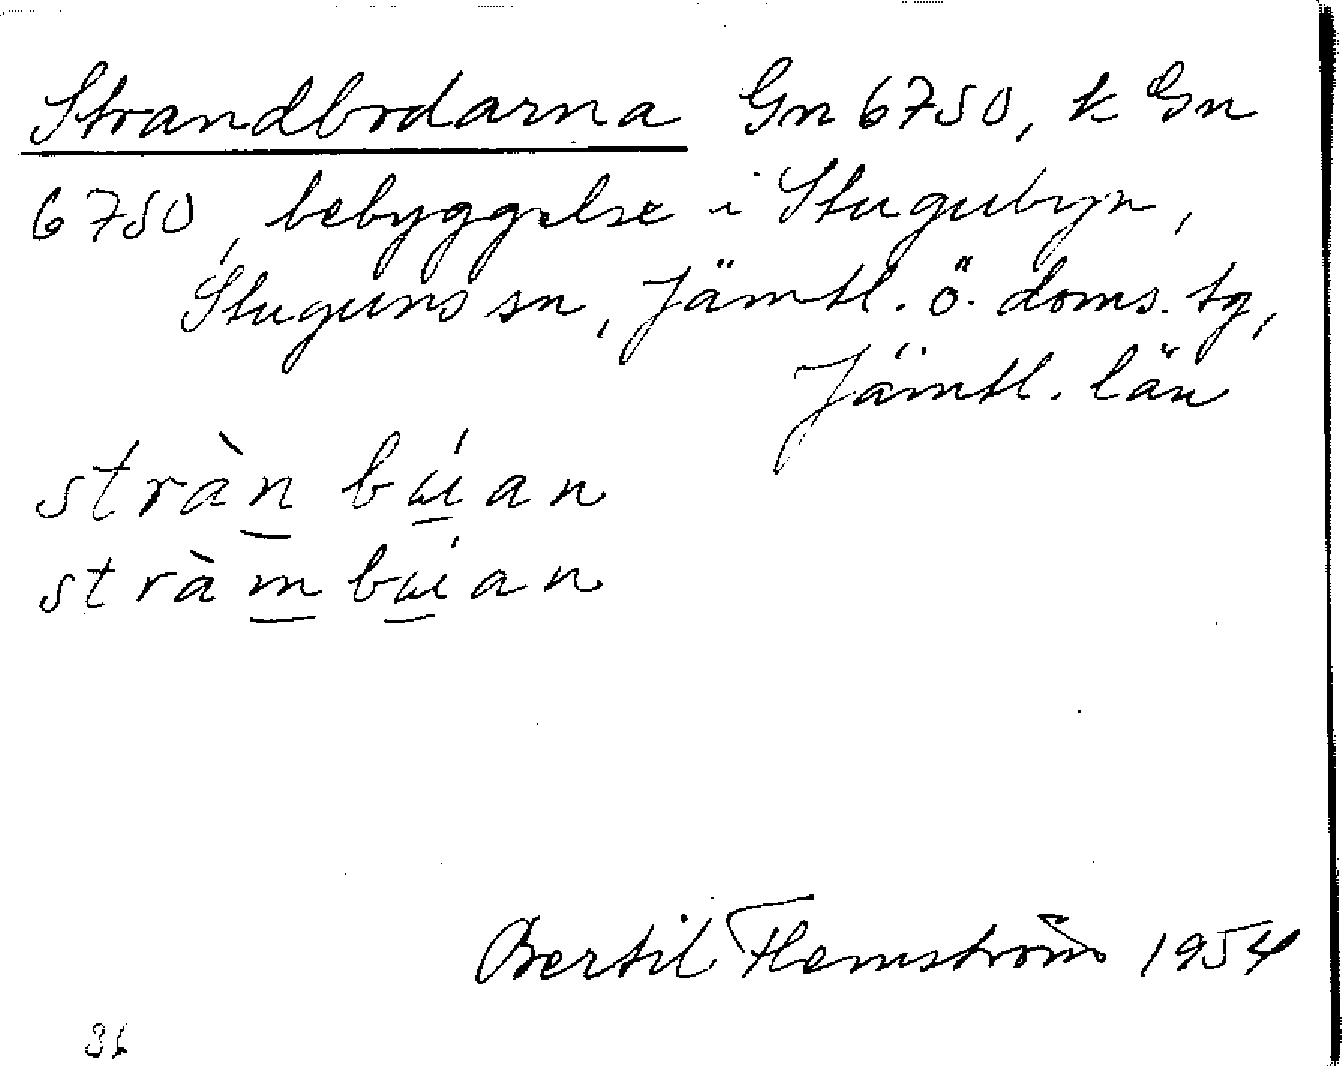 Strandbodarna Gn 6750, k Gn
6750, bebyggelse i Stugubyn,
Stuguns sn, Jämtl. ö. doms. tg,
Jämtl. län
stràn búan
stràm búan
Bertil Flemström 1954